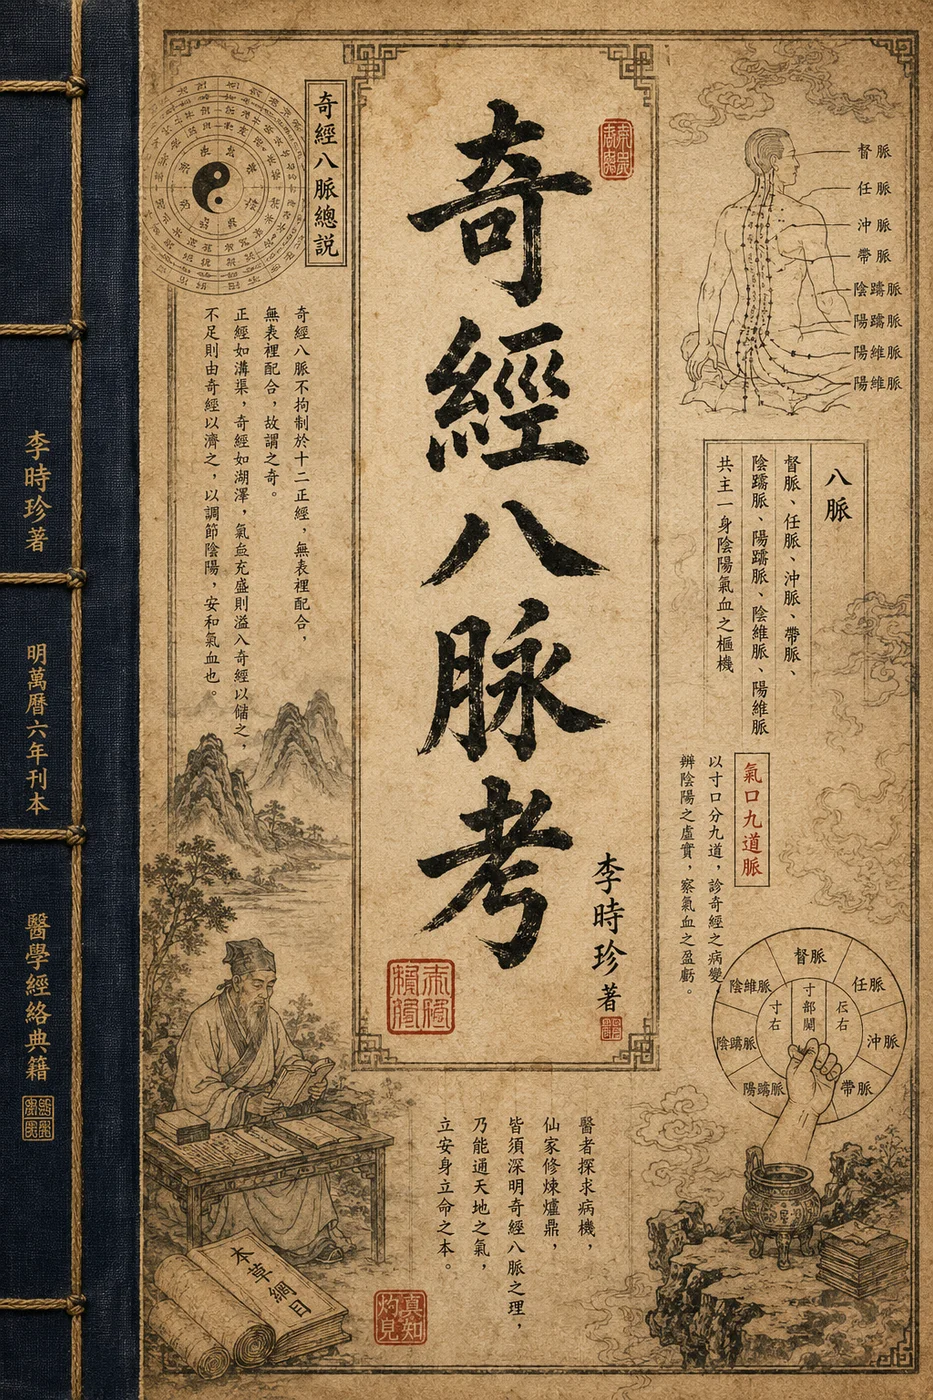 李時珍著
明萬曆六年刊本
醫學經絡典籍
奇經八脈總説
奇經八脈不拘制於十二正經，無表裡配合，
無表裡配合，故謂之奇。
正經如溝渠，奇經如湖澤，氣血充盛則溢入奇經以儲之，
不足則由奇經以濟之，以調節陰陽，安和氣血也。
奇經八脈考
李時珍著
督脈
任脈
沖脈
帶脈
陰蹻脈
陽蹻脈
陽維脈
陽維脈
八脈
督脈、任脈、沖脈、帶脈、
陰蹻脈、陽蹻脈、陰維脈、陽維脈
共主一身陰陽氣血之樞機
氣口九道脈
以寸口分九道，診奇經之病變，
辨陰陽之虛實，察氣血之盈虧。
督脈
任脈
沖脈
帶脈
陽蹻脈
陰蹻脈
陰維脈
寸右
寸部關
右
醫者探求病機，
仙家修煉爐鼎，
皆須深明奇經八脈之理，
乃能通天地之氣，
立安身立命之本。
本草綱目
真知
灼見